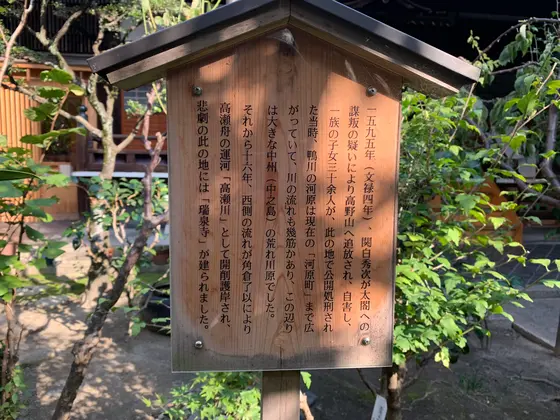 一五九五年（文禄四年）、関白秀次が太閤への
謀叛の疑いにより高野山へ追放され、自害し、
一族の子女三十余人が、此の地で公開処刑され
た当時、鴨川の河原は現在の「河原町」まで広
がっていて、川の流れも幾筋かあり、この辺り
は大きな中州（中之島）の荒れ川原でした。
それから十六年、西側の流れが角倉了以により
高瀬舟の運河「高瀬川」として開削護岸され、
悲劇の此の地には「瑞泉寺」が建られました。